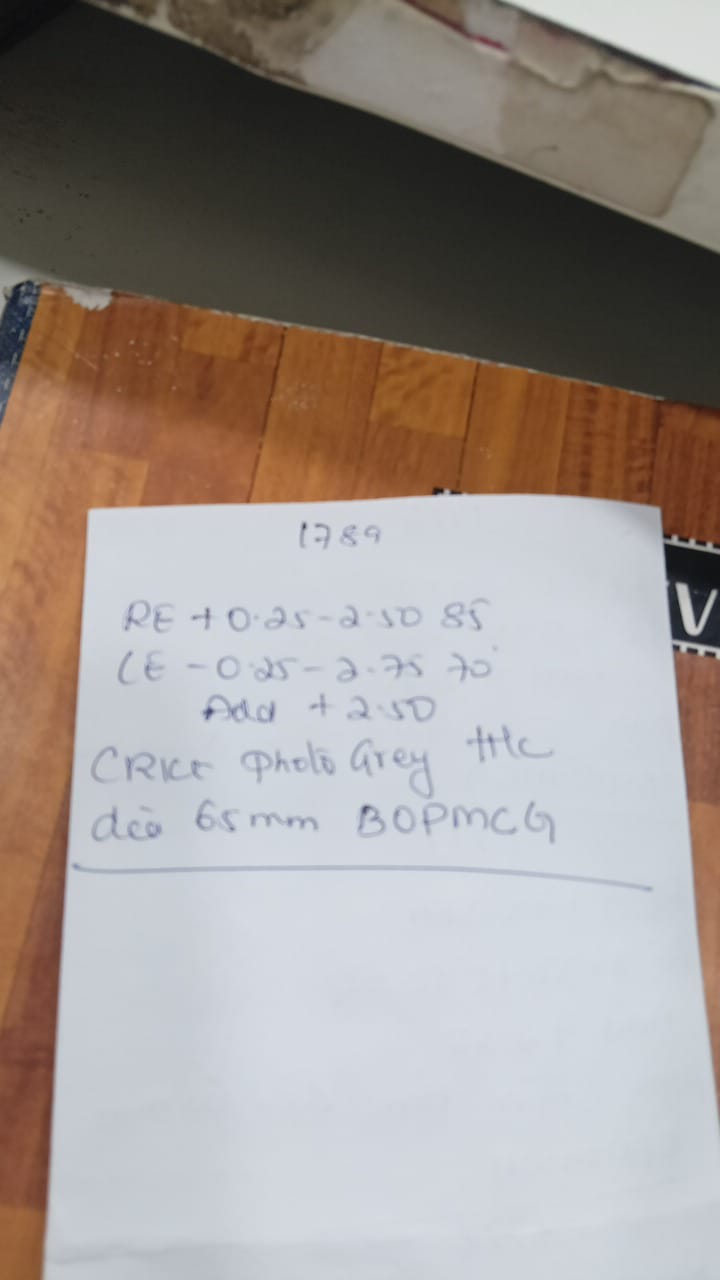 1789
RE +0.25-2.50 85
LE -0.25-2.75 70
Add +2.50
Photo Grey
dia 65mm BOPMCG
V